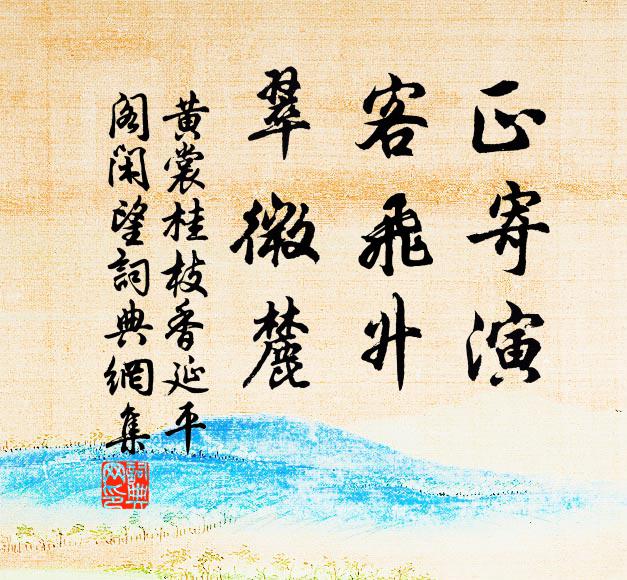 正寄演
客飛升
翠微麓
黃裳桂枝香延平
閣閑望詞典網集